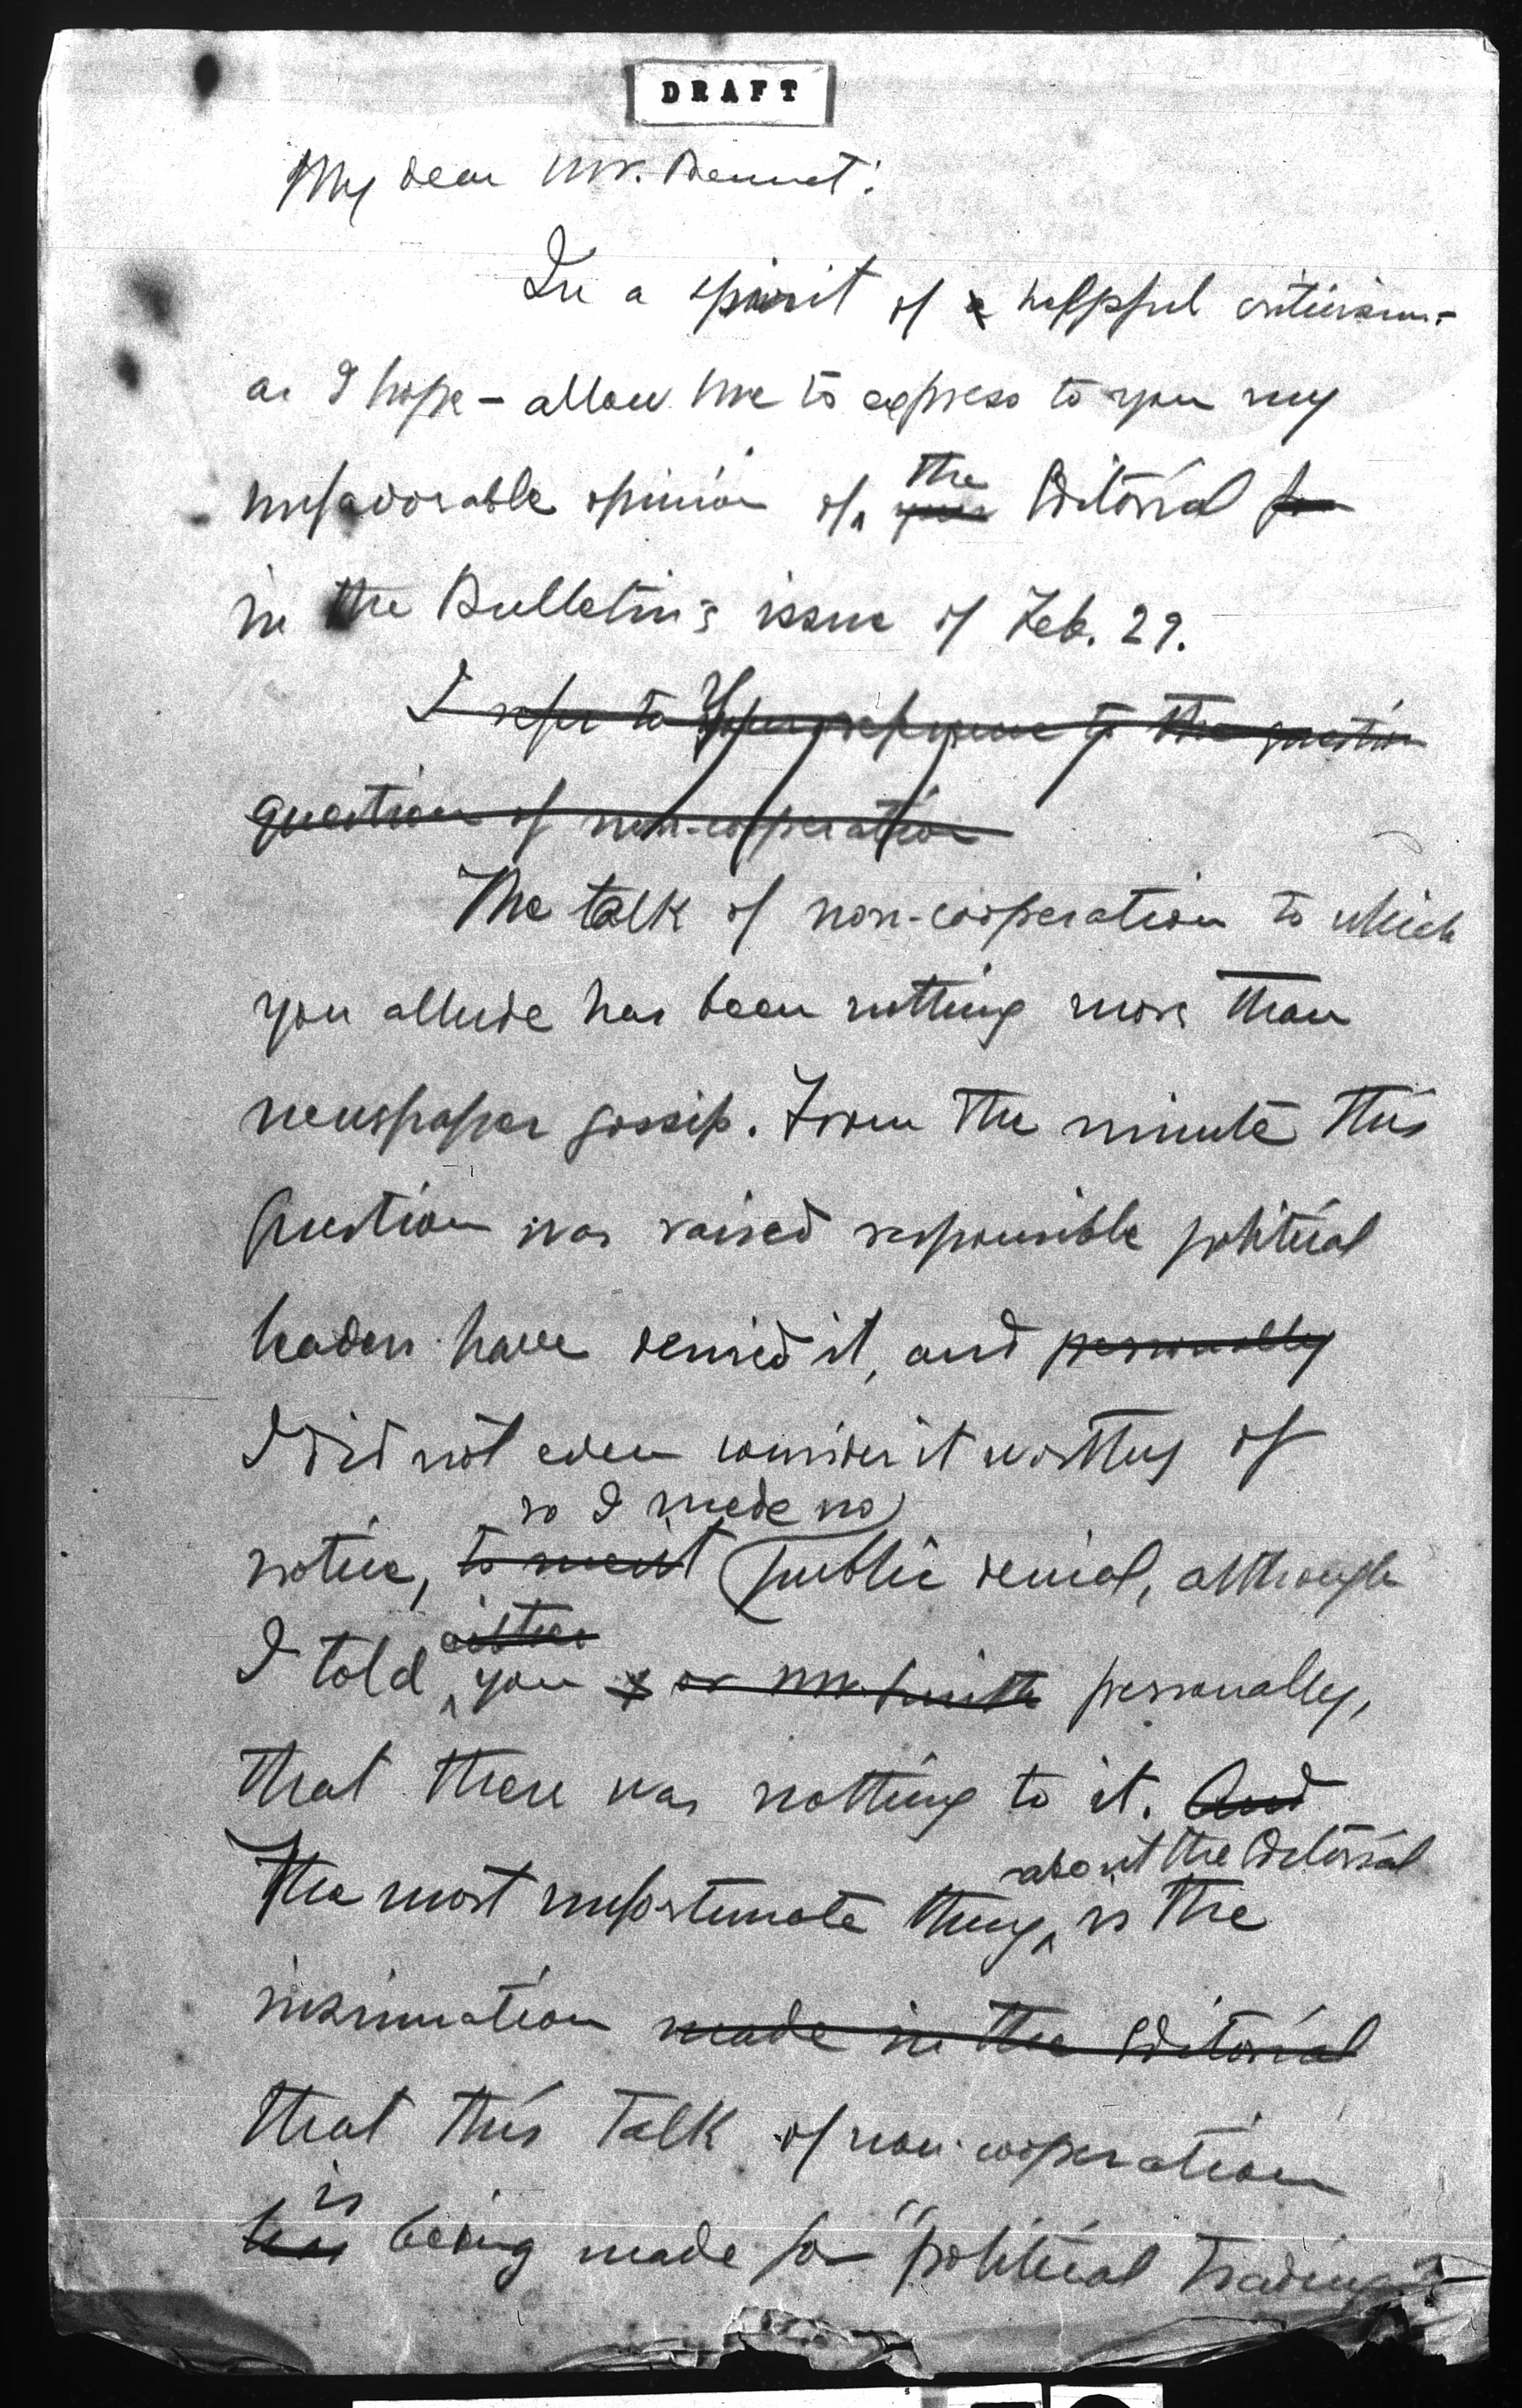 DRAFT
My dear Mr. Bennet:
In a spirit of a helpful criticism -
as I hope - allow me to express to you my
unfavorable opinion of the your Editorial for
in the Bulletin's issue of Feb. 29.
I refer to Your reference to the question
question of non-cooperation
The talk of non-cooperation to which
you allude has been nothing more than
newspaper gossip. From the minute this
question was raised responsible political
leaders have denied it, and personally
I did not even consider it worthy of
so I made no
notice, to merit public denial, although
either
I told you or Mr. personally,
that there was nothing to it. And
about the Editorial
The most unfortunate thing is the
insinuation made in the Editorial
that this talk of non-cooperation
is
has being made for "political trading"